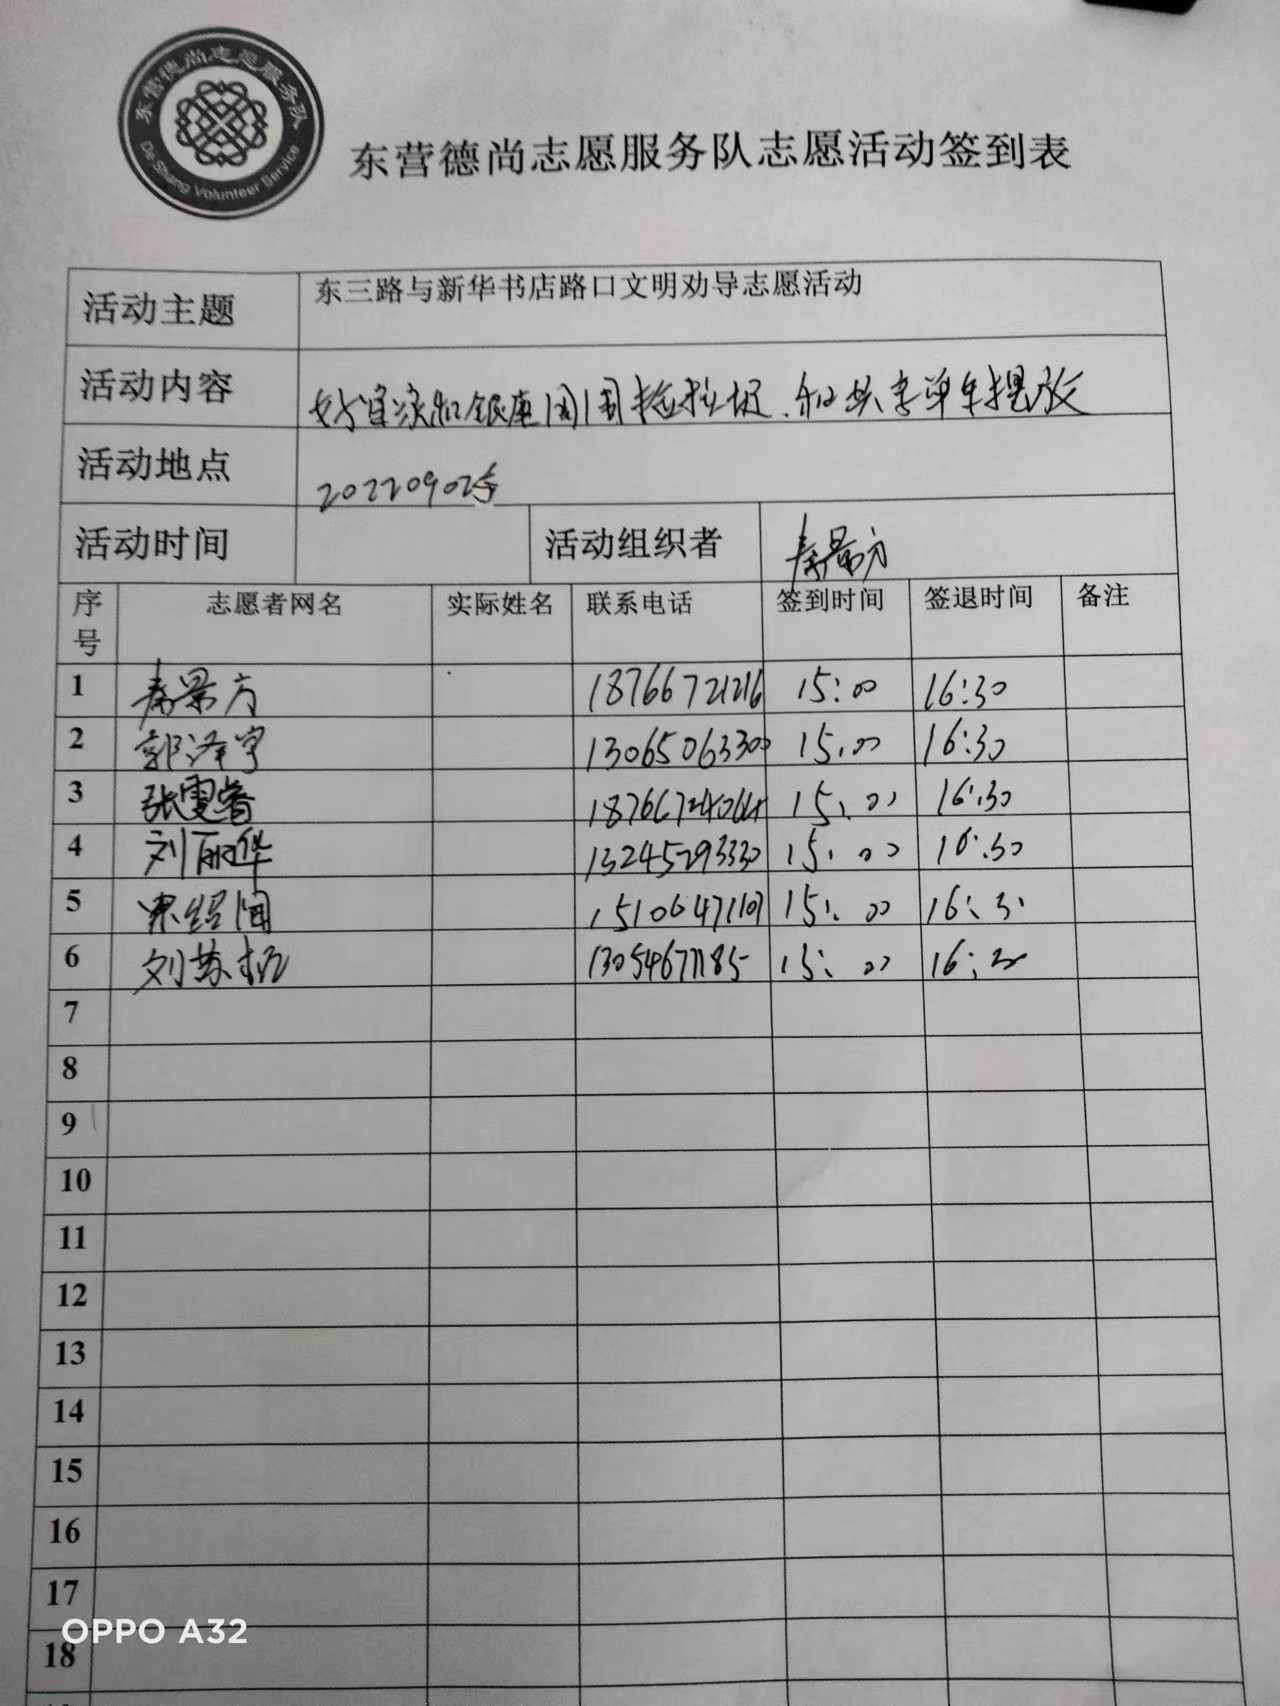 东营德尚志愿服务队
De Shang Volunteer Service
东营德尚志愿服务队志愿活动签到表
活动主题 东三路与新华书店路口文明劝导志愿活动
活动内容 好宜家和银座周围捡垃圾、和共享单车摆放
活动地点 20220902
活动时间 活动组织者 秦景方
序号 志愿者网名 实际姓名 联系电话 签到时间 签退时间 备注
1 秦景方 18766721216 15:00 16:30
2 郭泽宇 13065063300 15:00 16:30
3 张雯睿 15:00 16:30
4 刘丽华 13245293330 15:00 16:30
5 15106471107 15:00 16:3
6 刘苏 13054677185 15:00 16:
7
8
9
10
11
12
13
14
15
16
17
18
OPPO A32